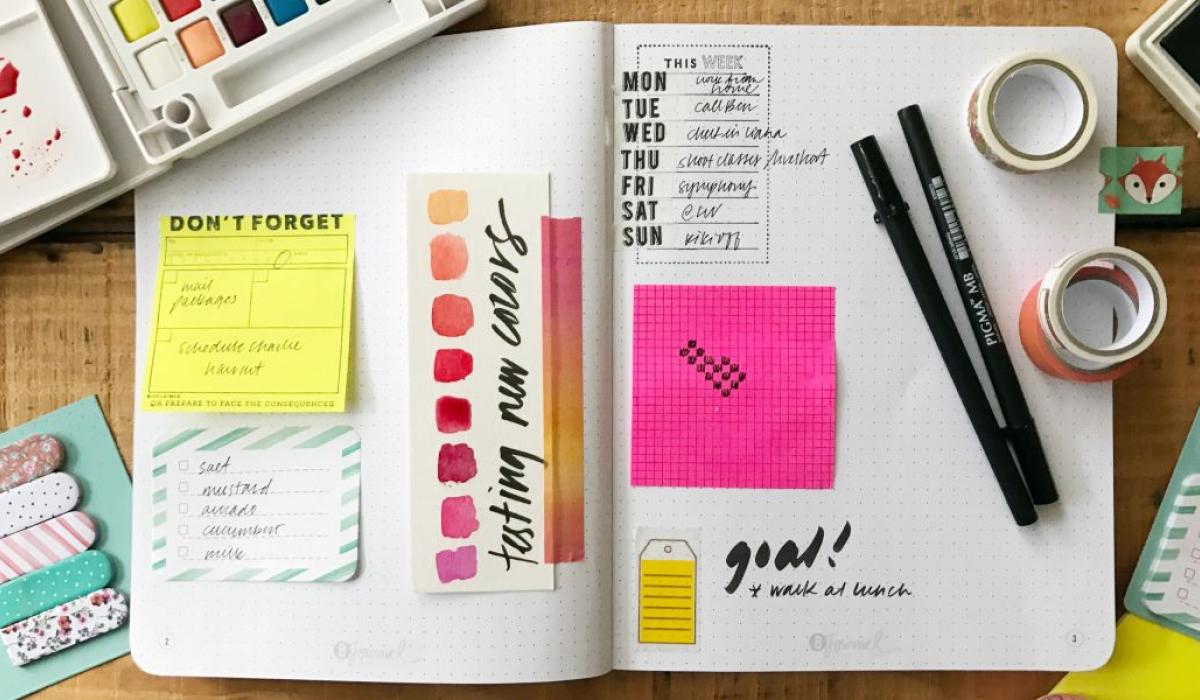 DON'T FORGET
mail
packages
schedule charlie
haircut
OR PREPARE TO FACE THE CONSEQUENCES
salt
mustard
avocado
cucumber
milk
2
testing new colors
THIS WEEK
MON work from
home
TUE call Ben
WED
THU shoot classes
FRI symphony
SAT
SUN
goal!
* walk at lunch
Journal
Journal
3
PIGMA MB